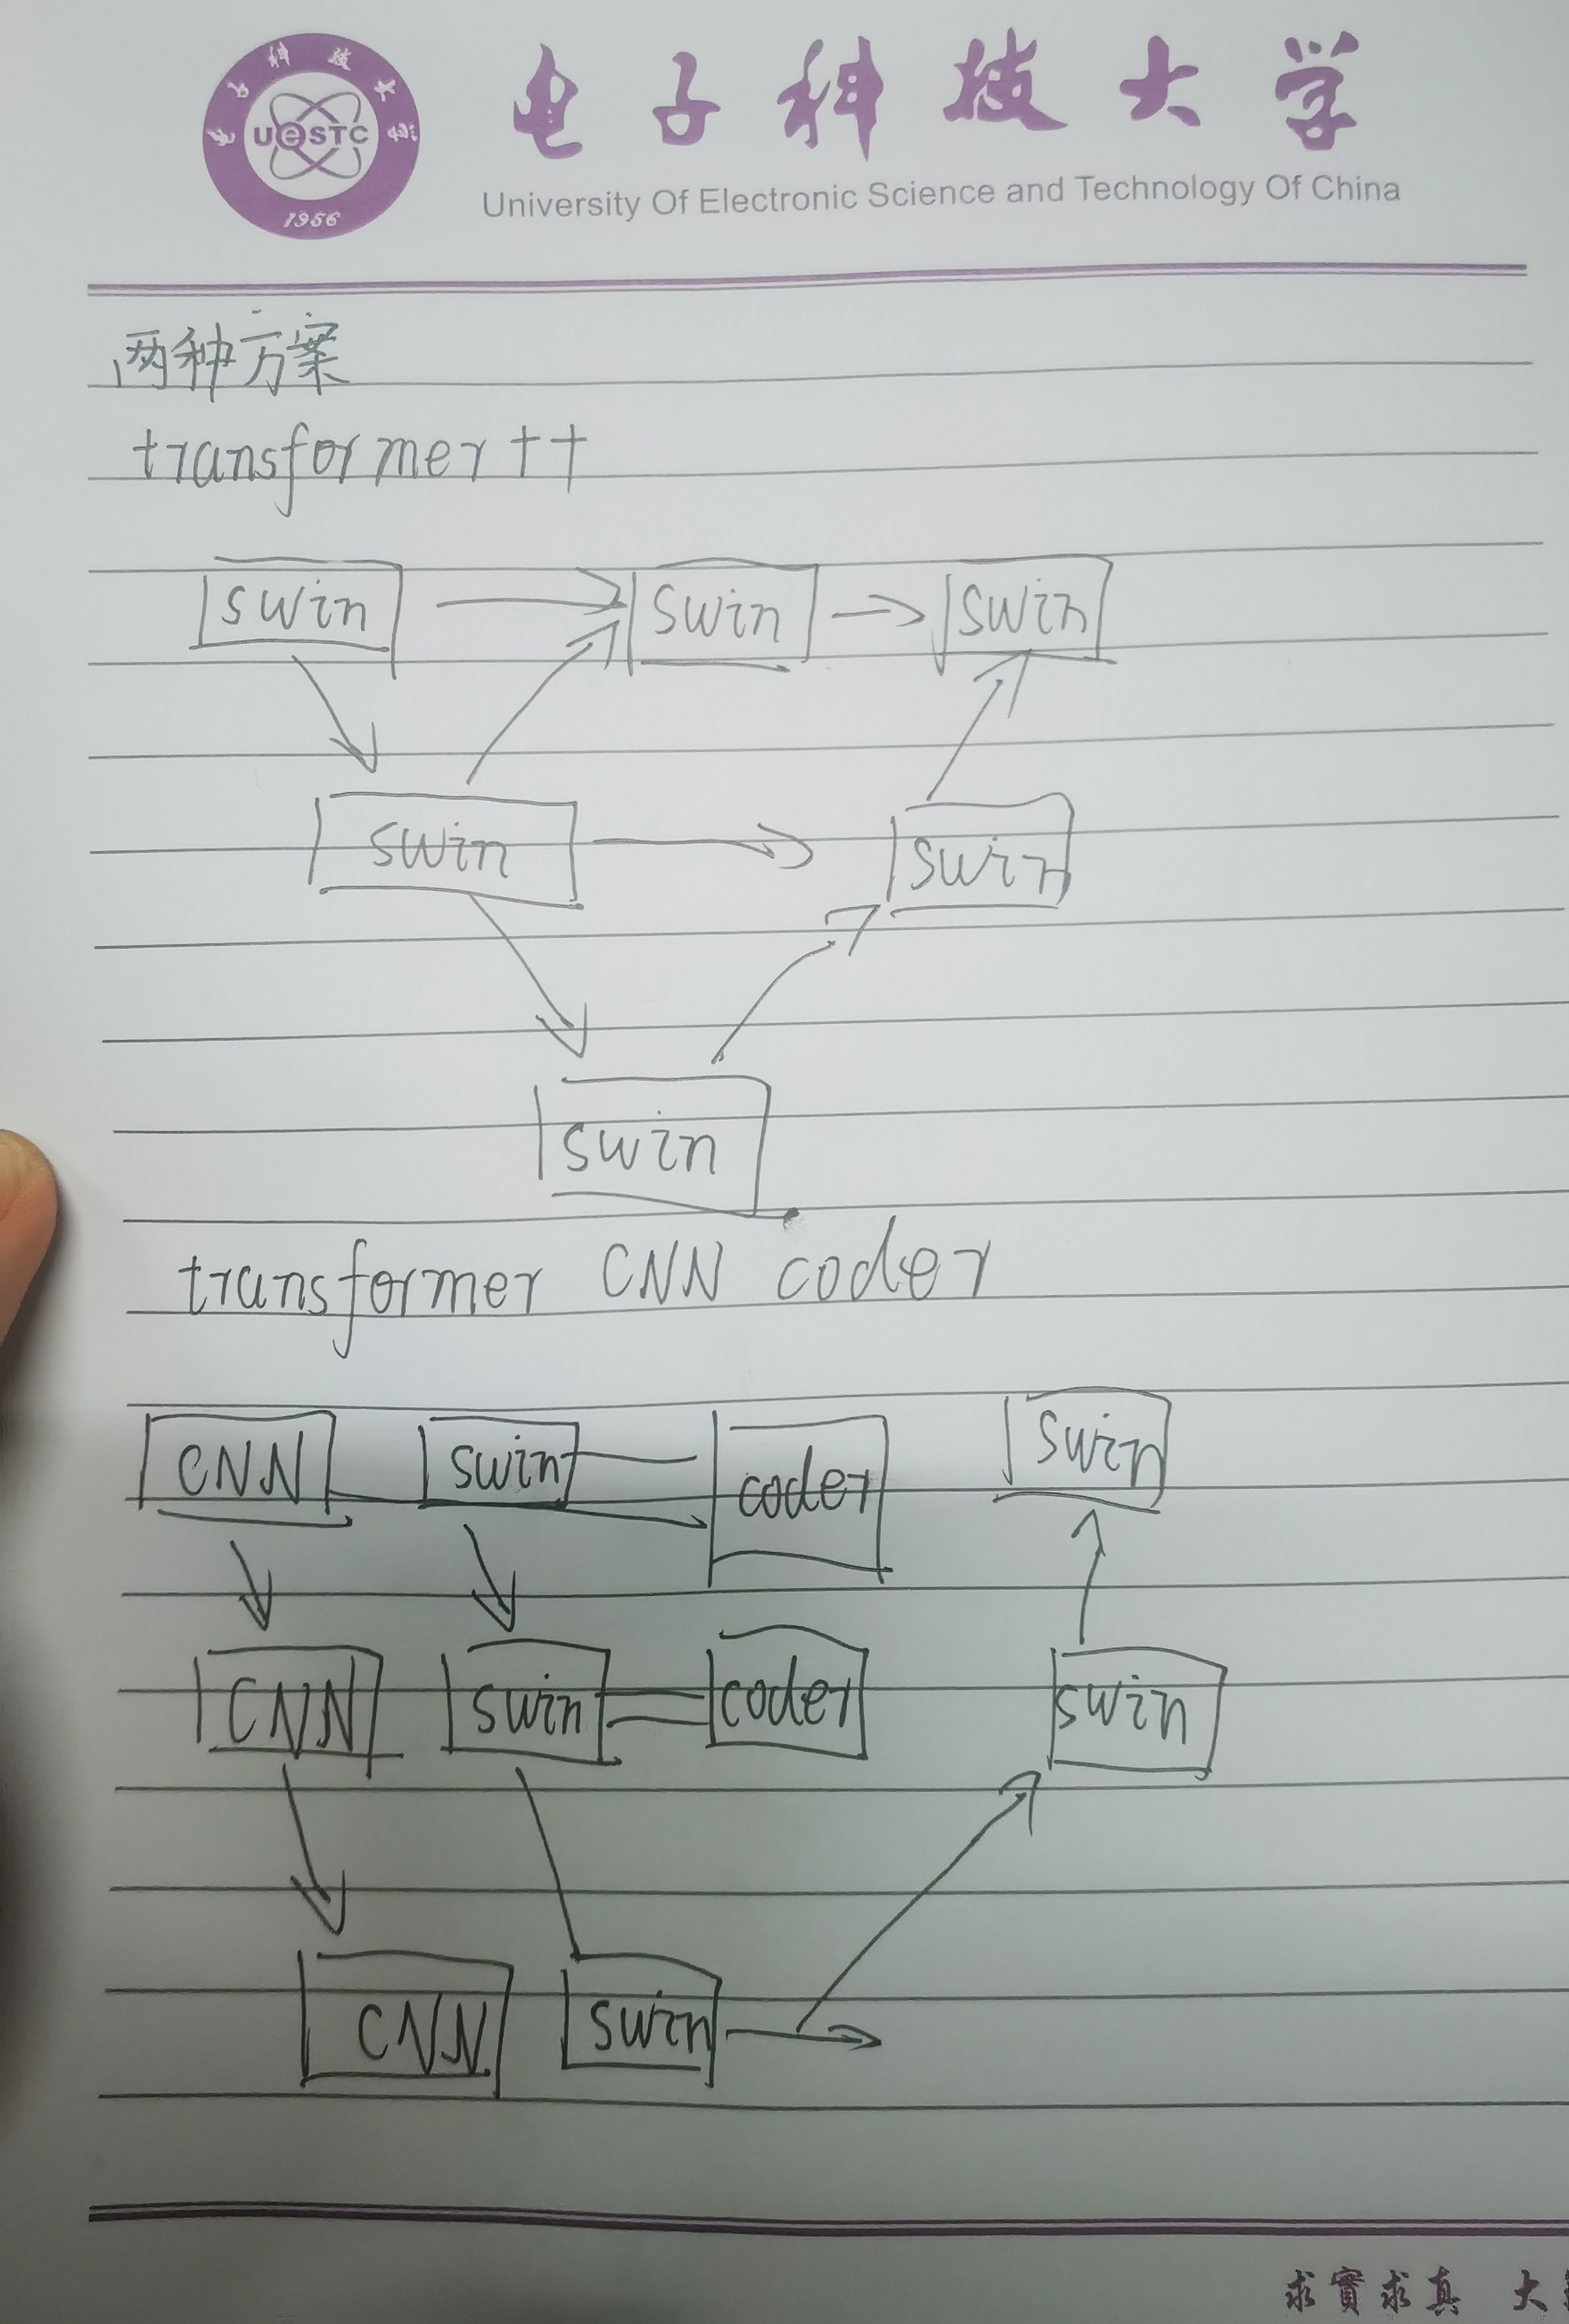 电子科技大学
UeSTC
电子科技大学
1956
University Of Electronic Science and Technology Of China
两种方案
transformer++
swin swin swin
swin swin
swin
transformer CNN coder
CNN swin coder swin
CNN swin coder swin
CNN swin
求實求真 大